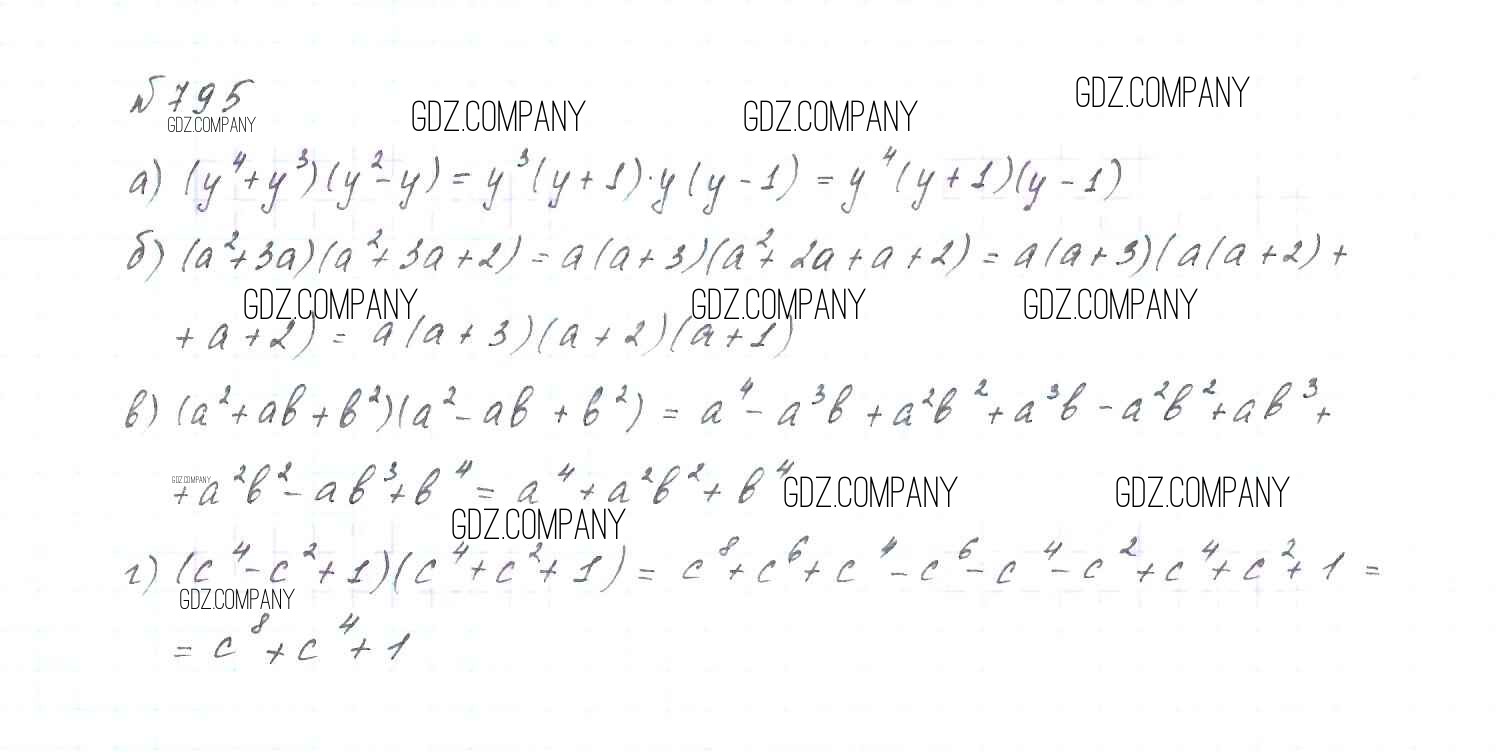 №795
GDZ.COMPANY GDZ.COMPANY GDZ.COMPANY GDZ.COMPANY
а) (y⁴+y³)(y²-y) = y³(y+1)·y(y-1) = y⁴(y+1)(y-1)
б) (a²+3a)(a²+3a+2) = a(a+3)(a²+2a+a+2) = a(a+3)(a(a+2)+
GDZ.COMPANY GDZ.COMPANY GDZ.COMPANY
+a+2) = a(a+3)(a+2)(a+1)
в) (a²+ab+b²)(a²-ab+b²) = a⁴-a³b+a²b²+a³b-a²b²+ab³+
GDZ.COMPANY
+a²b²-ab³+b⁴ = a⁴+a²b²+b⁴ GDZ.COMPANY GDZ.COMPANY
GDZ.COMPANY
г) (c⁴-c²+1)(c⁴+c²+1) = c⁸+c⁶+c⁴-c⁶-c⁴-c²+c⁴+c²+1 =
GDZ.COMPANY
= c⁸+c⁴+1